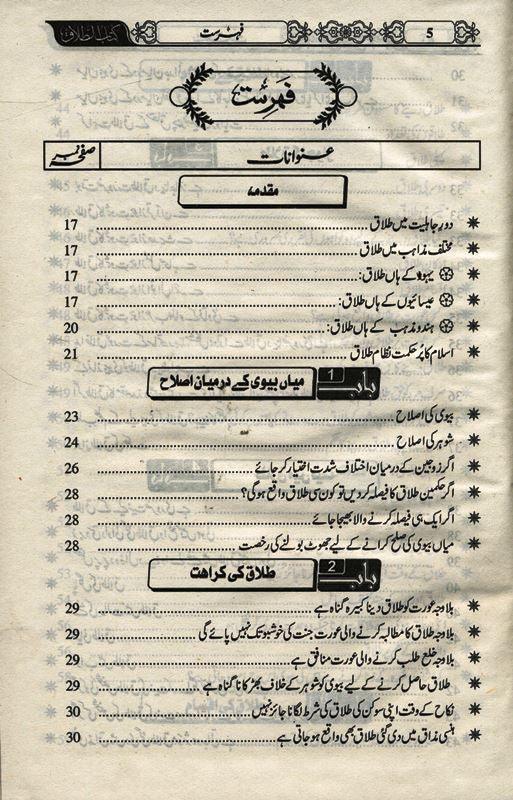 5
فہرست
کتاب الطلاق
فہرست
عنوانات
صفحہ نمبر
مقدمہ
* دورِ جاہلیت میں طلاق 17
* مختلف مذاہب میں طلاق 17
یہود کے ہاں طلاق: 17
عیسائیوں کے ہاں طلاق: 17
ہندو مذہب کے ہاں طلاق: 20
* اسلام کا پُر حکمت نظامِ طلاق 21
باب 1 میاں بیوی کے درمیان اصلاح
* بیوی کی اصلاح 23
* شوہر کی اصلاح 24
* اگر زوجین کے درمیان اختلاف شدت اختیار کر جائے 26
* اگر حکمین طلاق کا فیصلہ کر دیں تو کون سی طلاق واقع ہو گی؟ 28
* اگر ایک ہی فیصلہ کرنے والا بھیجا جائے 28
* میاں بیوی کی صلح کرانے کے لیے جھوٹ بولنے کی رخصت 28
باب 2 طلاق کی کراہت
* بلاوجہ عورت کو طلاق دینا کبیرہ گناہ ہے 29
* بلاوجہ طلاق کا مطالبہ کرنے والی عورت جنت کی خوشبو تک نہیں پائے گی 29
* بلاوجہ خلع طلب کرنے والی عورت منافق ہے 29
* طلاق حاصل کرنے کے لیے بیوی کو شوہر کے خلاف بھڑکانا گناہ ہے 29
* نکاح کے وقت اپنی سوکن کی طلاق کی شرط لگانا جائز نہیں 30
* ہنسی مذاق میں دی گئی طلاق بھی واقع ہو جاتی ہے 30